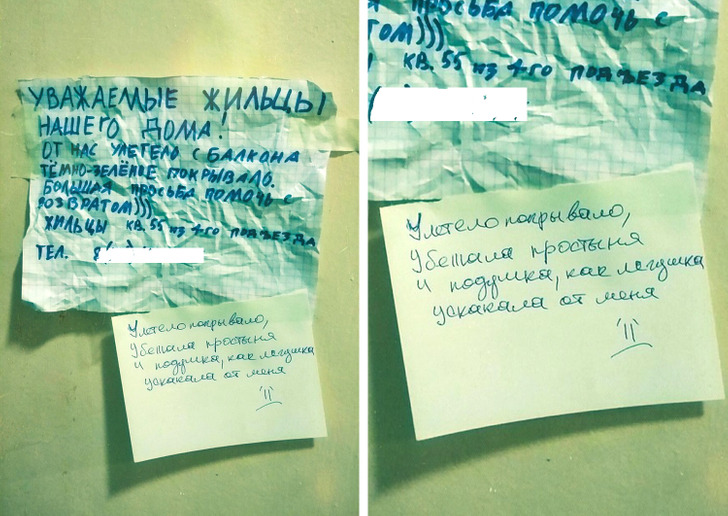 УВАЖАЕМЫЕ ЖИЛЬЦЫ
НАШЕГО ДОМА!
ОТ НАС УЛЕТЕЛО С БАЛКОНА
ТЁМНО-ЗЕЛЁНОЕ ПОКРЫВАЛО.
БОЛЬШАЯ ПРОСЬБА ПОМОЧЬ С
ВОЗВРАТОМ)))
ЖИЛЬЦЫ КВ. 55 ИЗ 4-ГО ПОДЪЕЗДА
ТЕЛ. 8(
Улетело покрывало,
Убежала простыня
И подушка, как лягушка
ускакала от меня
ПРОСЬБА ПОМОЧЬ С
ТОМ)))
КВ. 55 ИЗ 4-ГО ПОДЪЕЗДА
Улетело покрывало,
Убежала простыня
И подушка, как лягушка
ускакала от меня